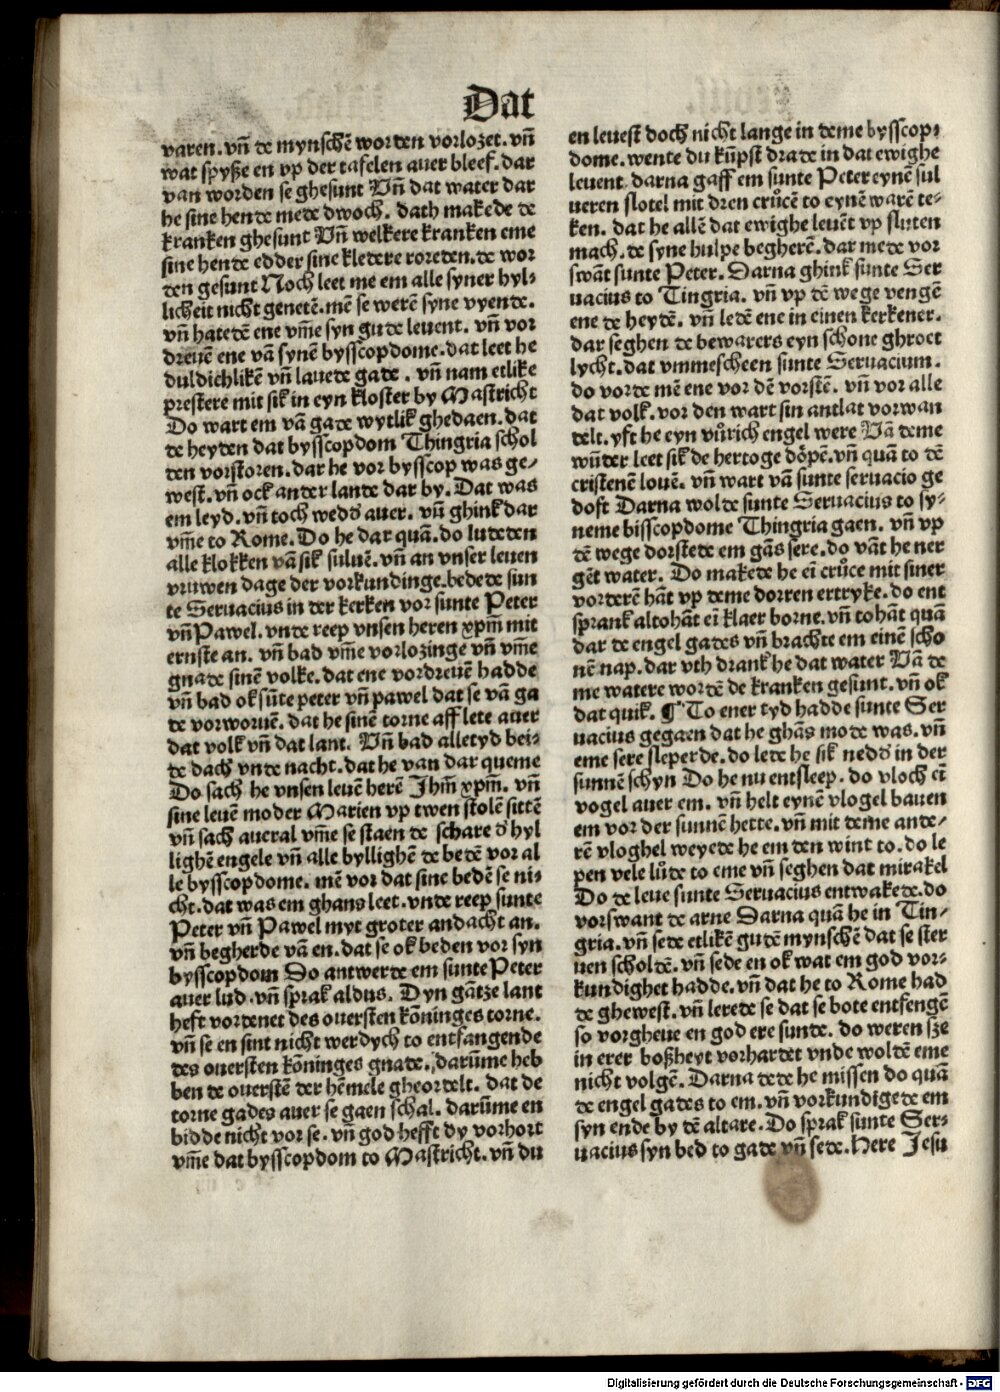 Dat
varen. vñ de mynschē worden vorlozet. vñ
wat spyße en vp der tafelen auer bleef. dar
van worden se ghesunt Vñ dat water dar
he sine hende mede dwoch. dath makede de
kranken ghesunt Vñ welkere kranken eme
sine hende edder sine kledere roreden. de wor
den gesunt Noch leet me em alle syner hyl/
licheit nicht genetē. mē se werē syne vyende.
vñ hatedē ene vm̄e syn gude leuent. vñ vor
dreuē ene vā synē bysscopdome. dat leet he
duldichlikē vñ lauede gade. vñ nam etlike
prestere mit sik in eyn kloster by Mastricht
Do wart em vā gade wytlik ghedaen. dat
de heyden dat bysscopdom Thingria schol
den vorstoren. dar he vor bysscop was ge/
west. vñ ock ander lande dar by. Dat was
em leyd. vñ toch weds auer. vñ ghink dar
vm̄e to Rome. Do he dar quā. do ludeden
alle klokken vā sik suluē. vñ an vnser leuen
vruwen dage der vorkundinge. bedede sun
te Seruacius in der kerken vor sunte Peter
vñ Pawel. vnde reep vnsen heren xpm̄ mit
ernste an. vñ bad vm̄e vorlozinge vñ vm̄e
gnade sinē volke. dat ene vordreuē hadde
vñ bad ok sūte peter vñ pawel dat se vā ga
de vorworuē. dat he sinē torne aff lete auer
dat volk vñ dat lant. Vñ bad alletyd bei/
de dach vnde nacht. dat he van dar queme
Do sach he vnsen leuē herē Jhm̄ xpm̄. vñ
sine leuē moder Marien vp twen stolē sittē
vñ sach aueral vm̄e se staen de schare d hyl
lighē engele vñ alle byllighē de bedē vor al
le bysscopdome. mē vor dat sine bedē se ni/
cht. dat was em ghans leet. vnde reep sunte
Peter vñ Pawel myt groter andacht an.
vñ begherde vā en. dat se ok beden vor syn
bysscopdom Do antwerde em sunte Peter
auer lud. vñ sprak aldus. Dyn gātze lant
heft vordenet des ouersten kōninges torne.
vñ se en sint nicht werdych to entfangende
des ouersten kōninges gnade. darūme heb
ben de ouerstē der hēmele gheordelt. dat de
torne gades auer se gaen schal. darūme en
bidde nicht vor se. vñ god hefft dy vorhort
vm̄e dat bysscopdom to Mastricht. vñ du
en leuest doch nicht lange in deme bysscop/
dome. wente du kūpst drade in dat ewighe
leuent. darna gaff em sunte Peter eynē sul
ueren slotel mit dren crůcē to eynē warē te/
ken. dat he allē dat ewighe leuēt vp sluten
mach. de syne hulpe begherē. dar mede vor
swāt sunte Peter. Darna ghink sunte Ser
uacius to Tingria. vñ vp dē wege vengē
ene de heydē. vñ ledē ene in einen kerkener.
dar seghen de bewarers eyn schone ghroet
lycht. dat vmmescheen sunte Seruacium.
do vorde mē ene vor dē vorstē. vñ vor alle
dat volk. vor den wart sin antlat vorwan
delt. yft he eyn vůrich engel were Vā deme
wūder leet sik de hertoge dȫpē. vñ quā to dē
cristenē louē. vñ wart vā sunte seruacio ge
doft Darna wolde sunte Seruacius to sy/
neme bisscopdome Thingria gaen. vñ vp
dē wege dorstede em gās sere. do vāt he ner
gēt water. Do makede he eī crůce mit siner
vorderē hāt vp deme dorren ertryke. do ent
sprank altohāt eī klaer borne. vñ tohāt quā
dar de engel gades vñ brachte em einē scho
nē nap. dar vth drank he dat water Vā de
me watere wordē de kranken gesunt. vñ ok
dat quik. ¶ To ener tyd hadde sunte Ser
uacius gegaen dat he ghās mode was. vñ
eme sere sleperde. do lede he sik neds in der
sunnē schyn Do he nu entsleep. do vloch eī
vogel auer em. vñ helt eynē vlogel bauen
em vor der sunnē hette. vñ mit deme ande/
rē vloghel weyede he em den wint to. do le
pen vele lůde to eme vñ seghen dat mirakel
Do de leue sunte Seruacius entwakede. do
vorswant de arne Darna quā he in Tin/
gria. vñ sede etlikē gudē mynschē dat se ster
uen scholdē. vñ sede en ok wat em god vor/
kundighet hadde. vñ dat he to Rome had
de ghewest. vñ lerede se dat se bote entfengē
so vorgheue en god ere sunde. do weren sze
in erer boßheyt vorhardet vnde woldē eme
nicht volgē. Darna dede he missen do quā
de engel gades to em. vñ vorkundigede em
syn ende by dē altare. Do sprak sunte Ser/
uacius syn bed to gade vñ sede. Here Jesu
Digitalisierung gefördert durch die Deutsche Forschungsgemeinschaft - DFG